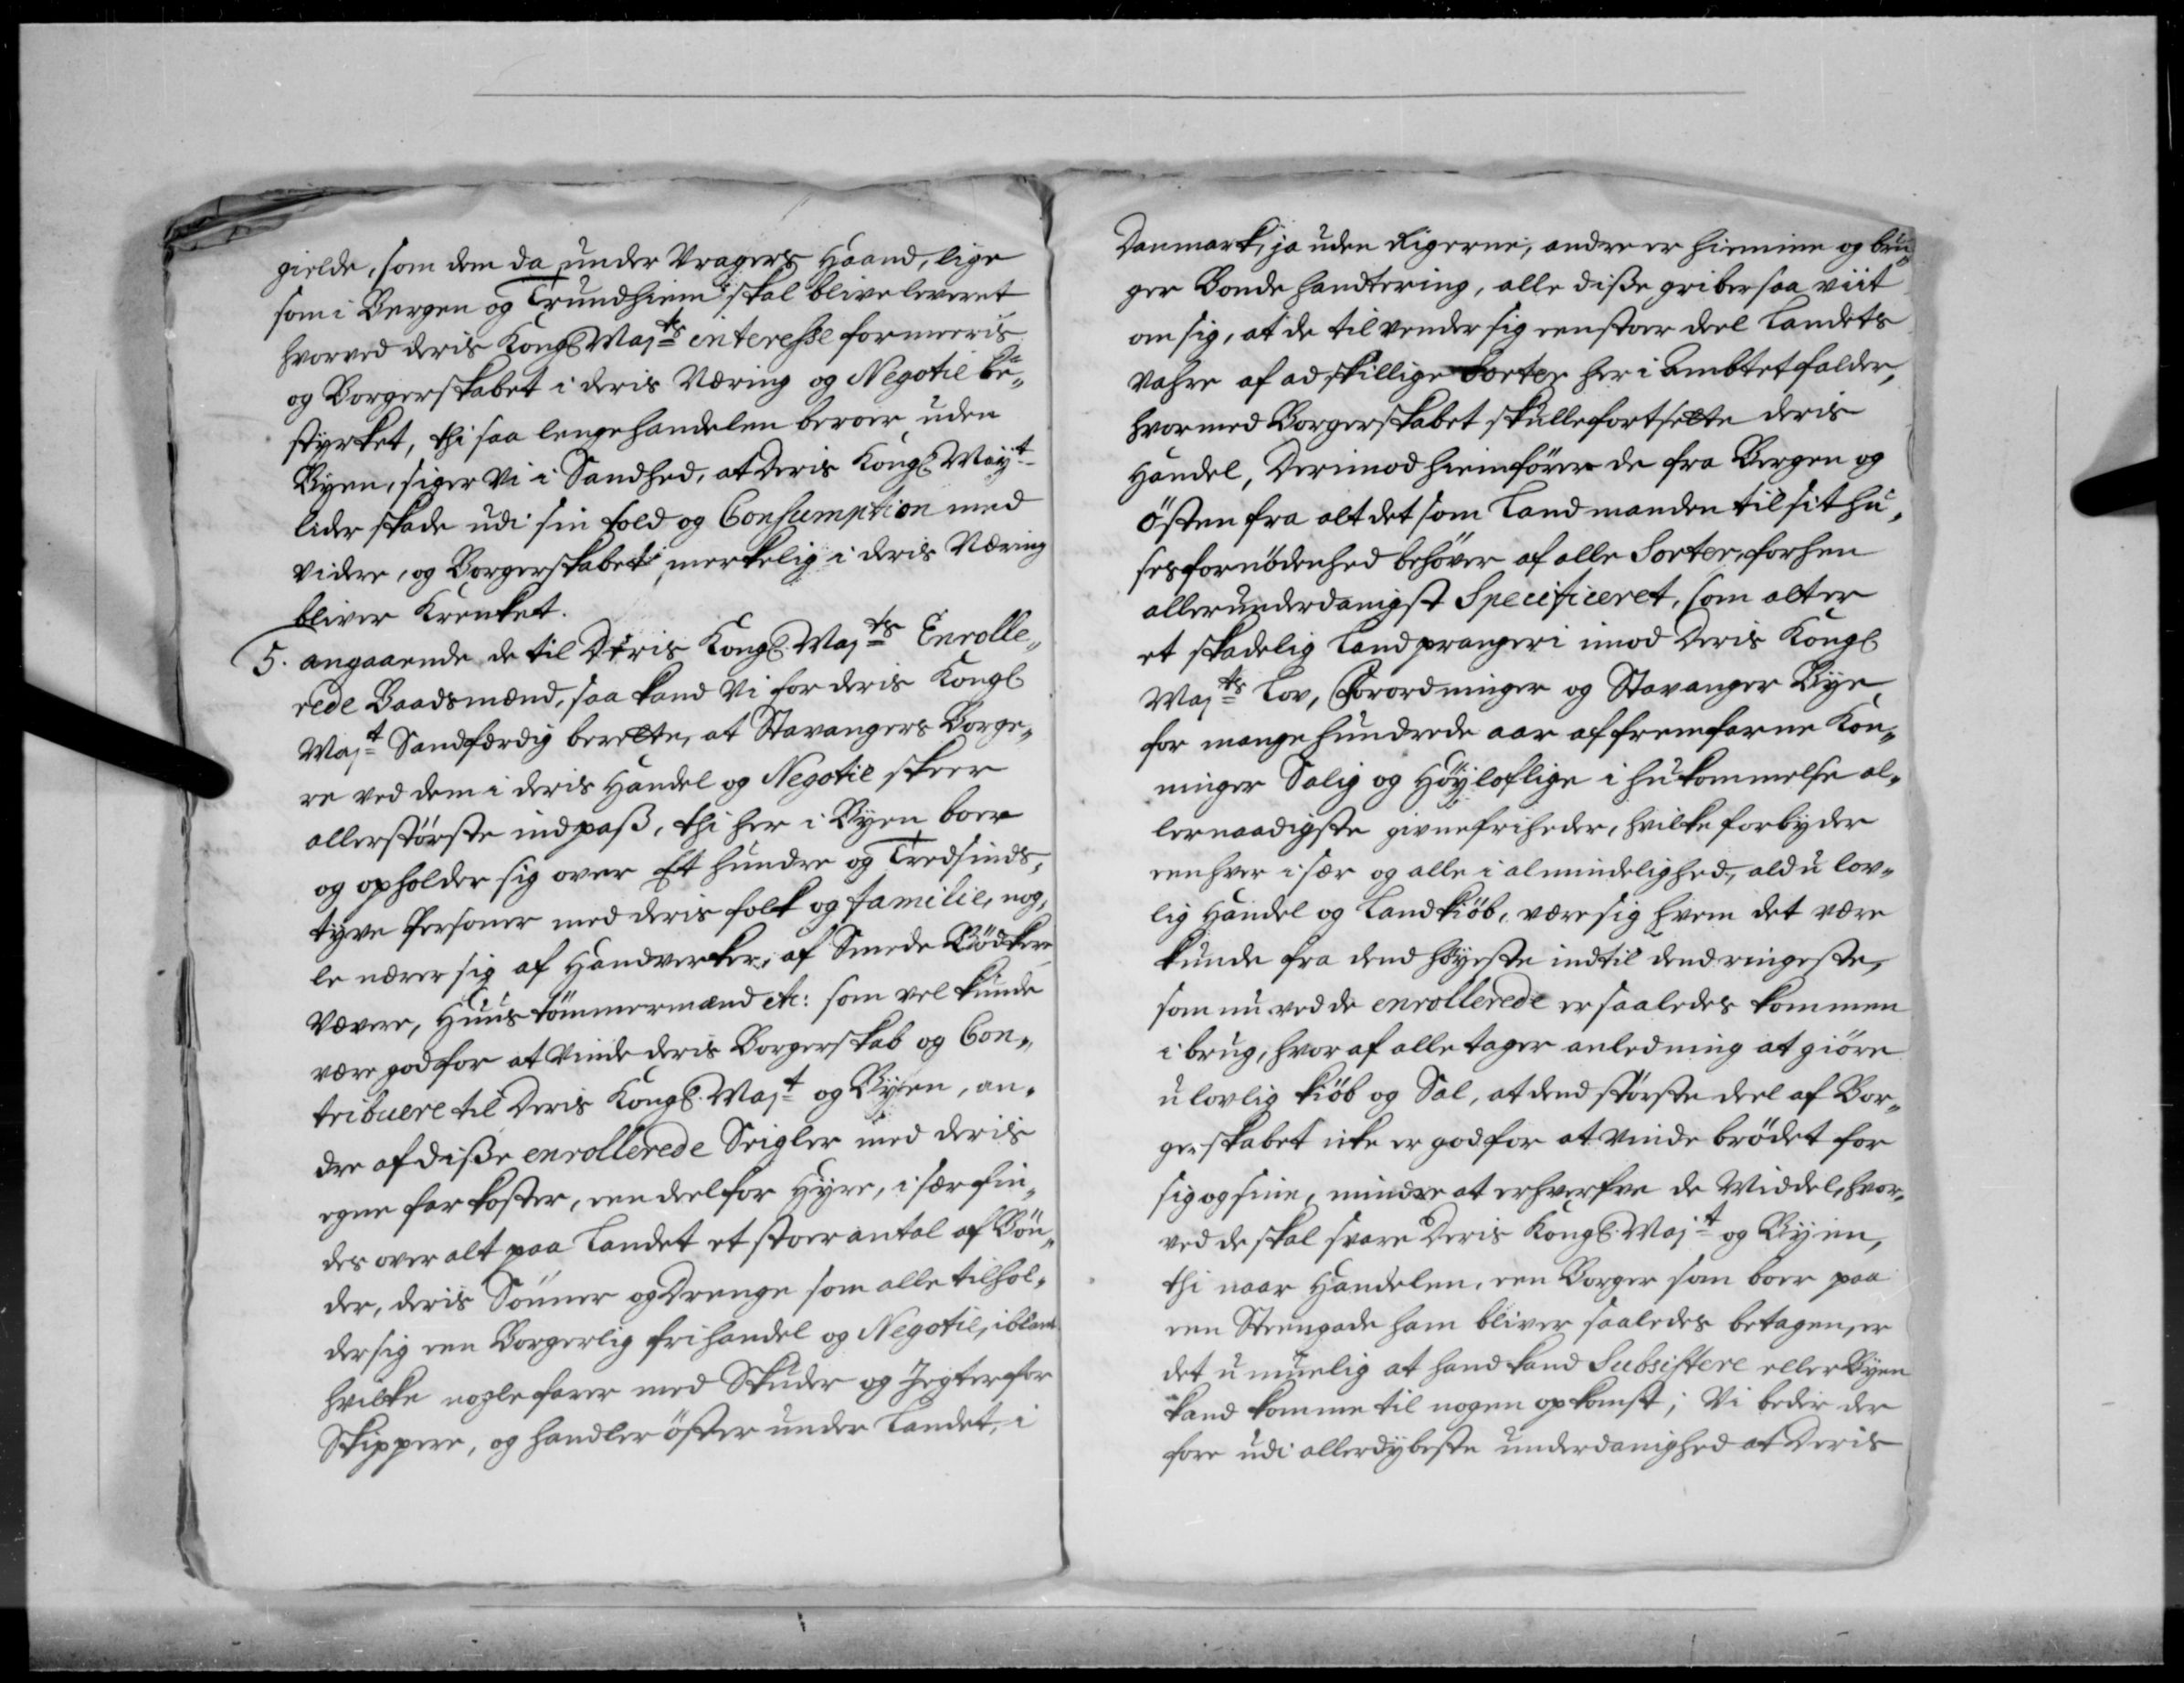 gielde, som dem da under Vragers Haand, lige
som i Bergen og Trundhiem skal blive leveret
hvorved deris Kongl Majts enteresse formeeris
og Borgerskabet i deris Næring og Negotie be„
styrket, thi saa lenge handelen beroer uden
Byen, siger Vi i Sandhed, at Deris Kongl Mayt
lider skade udi sin told og Consumption med
videre, og Borgerskabet merkelig i deris Næring
bliver Krenket.
5. angaaende de til Deris Kongl. Majts Enrolle„
rede Baadsmænd, saa kand Vi for deris Kongl
Majt Sandfærdig berette, at Stavangers Borge„
re ved dem i deris Handel og Negotie skeer
allerstörste indpass, thi her i Byen boer
og opholder sig over Et hundre og Tredsinds„
tyve Personer med deris folk og familie, nog„
le nærer sig af Handverker, af Smede Bödkere
Vævere, Huustömmermænd etc: som vel kunde
være god for at Vinde deris Borgerskab og Con„
tribuere til Deris Kongl. Majt og Byen, an„
dre af disse enrollerede Seigler med deris
egne farkoster, een deel for Hyre, i sær fin„
des over alt paa Landet et stoer antal af Bön„
der, deris Sönner og Drenge som alle tilhol„
der sig een Borgerlig frihandel og Negotie, iblant
hvilke nogle farer med Skuder og Jegter for
Skippere, og handler öster under Landet, i
Danmark, ja uden Rigerne, andre er hiemme og bru„
ger Bonde handtering, alle disse griber saa viit
om sig, at de tilvender sig een stoer deel Landets
Vahre af adskillige Sorter her i Ambtet falder,
hvormed Borgerskabet skulle fortsette deris
Handel, Derimod hiemförer de fra Bergen og
Östen fra alt det som Landmanden til sit hu„
ses fornödenhed behöver af alle Sorter, forhen
allerunderdanigst Specificeret, som alt er
et skadelig Landprangeri imod Deris Kongl
Majts Lov, Forordninger og Stavanger Bye
for mange hundrede aar af fremfarne Kon„
ninger Salig og Höyloflige i hukommelse al„
lernaadigste givne friheder, hvilke forbyder
eenhver i sær og alle i almindelighed, ald u lov„
lig Handel og Landkiöb, være sig hvem det være
kunde fra dend höyeste indtil dend ringeste,
som nu ved de enrollerede er saaledes kommen
i brug, hvoraf alle tager anledning at giöre
ulovlig kiöb og Sal, at dend störste deel af Bor„
gerskabet icke er god for at vinde brödet for
sig og sine, mindre at erhverfve de Middel, hvor„
ved de skal svare Deris Kongl. Majt og Byen,
thi naar Handelen, een Borger som boer paa
een Steengade ham bliver saaledes betagen, er
det u muelig at hand kand Subsistere eller Byen
kand komme til nogen opkomst; Vi beder der
fore udi allerdybeste underdanighed at Deris